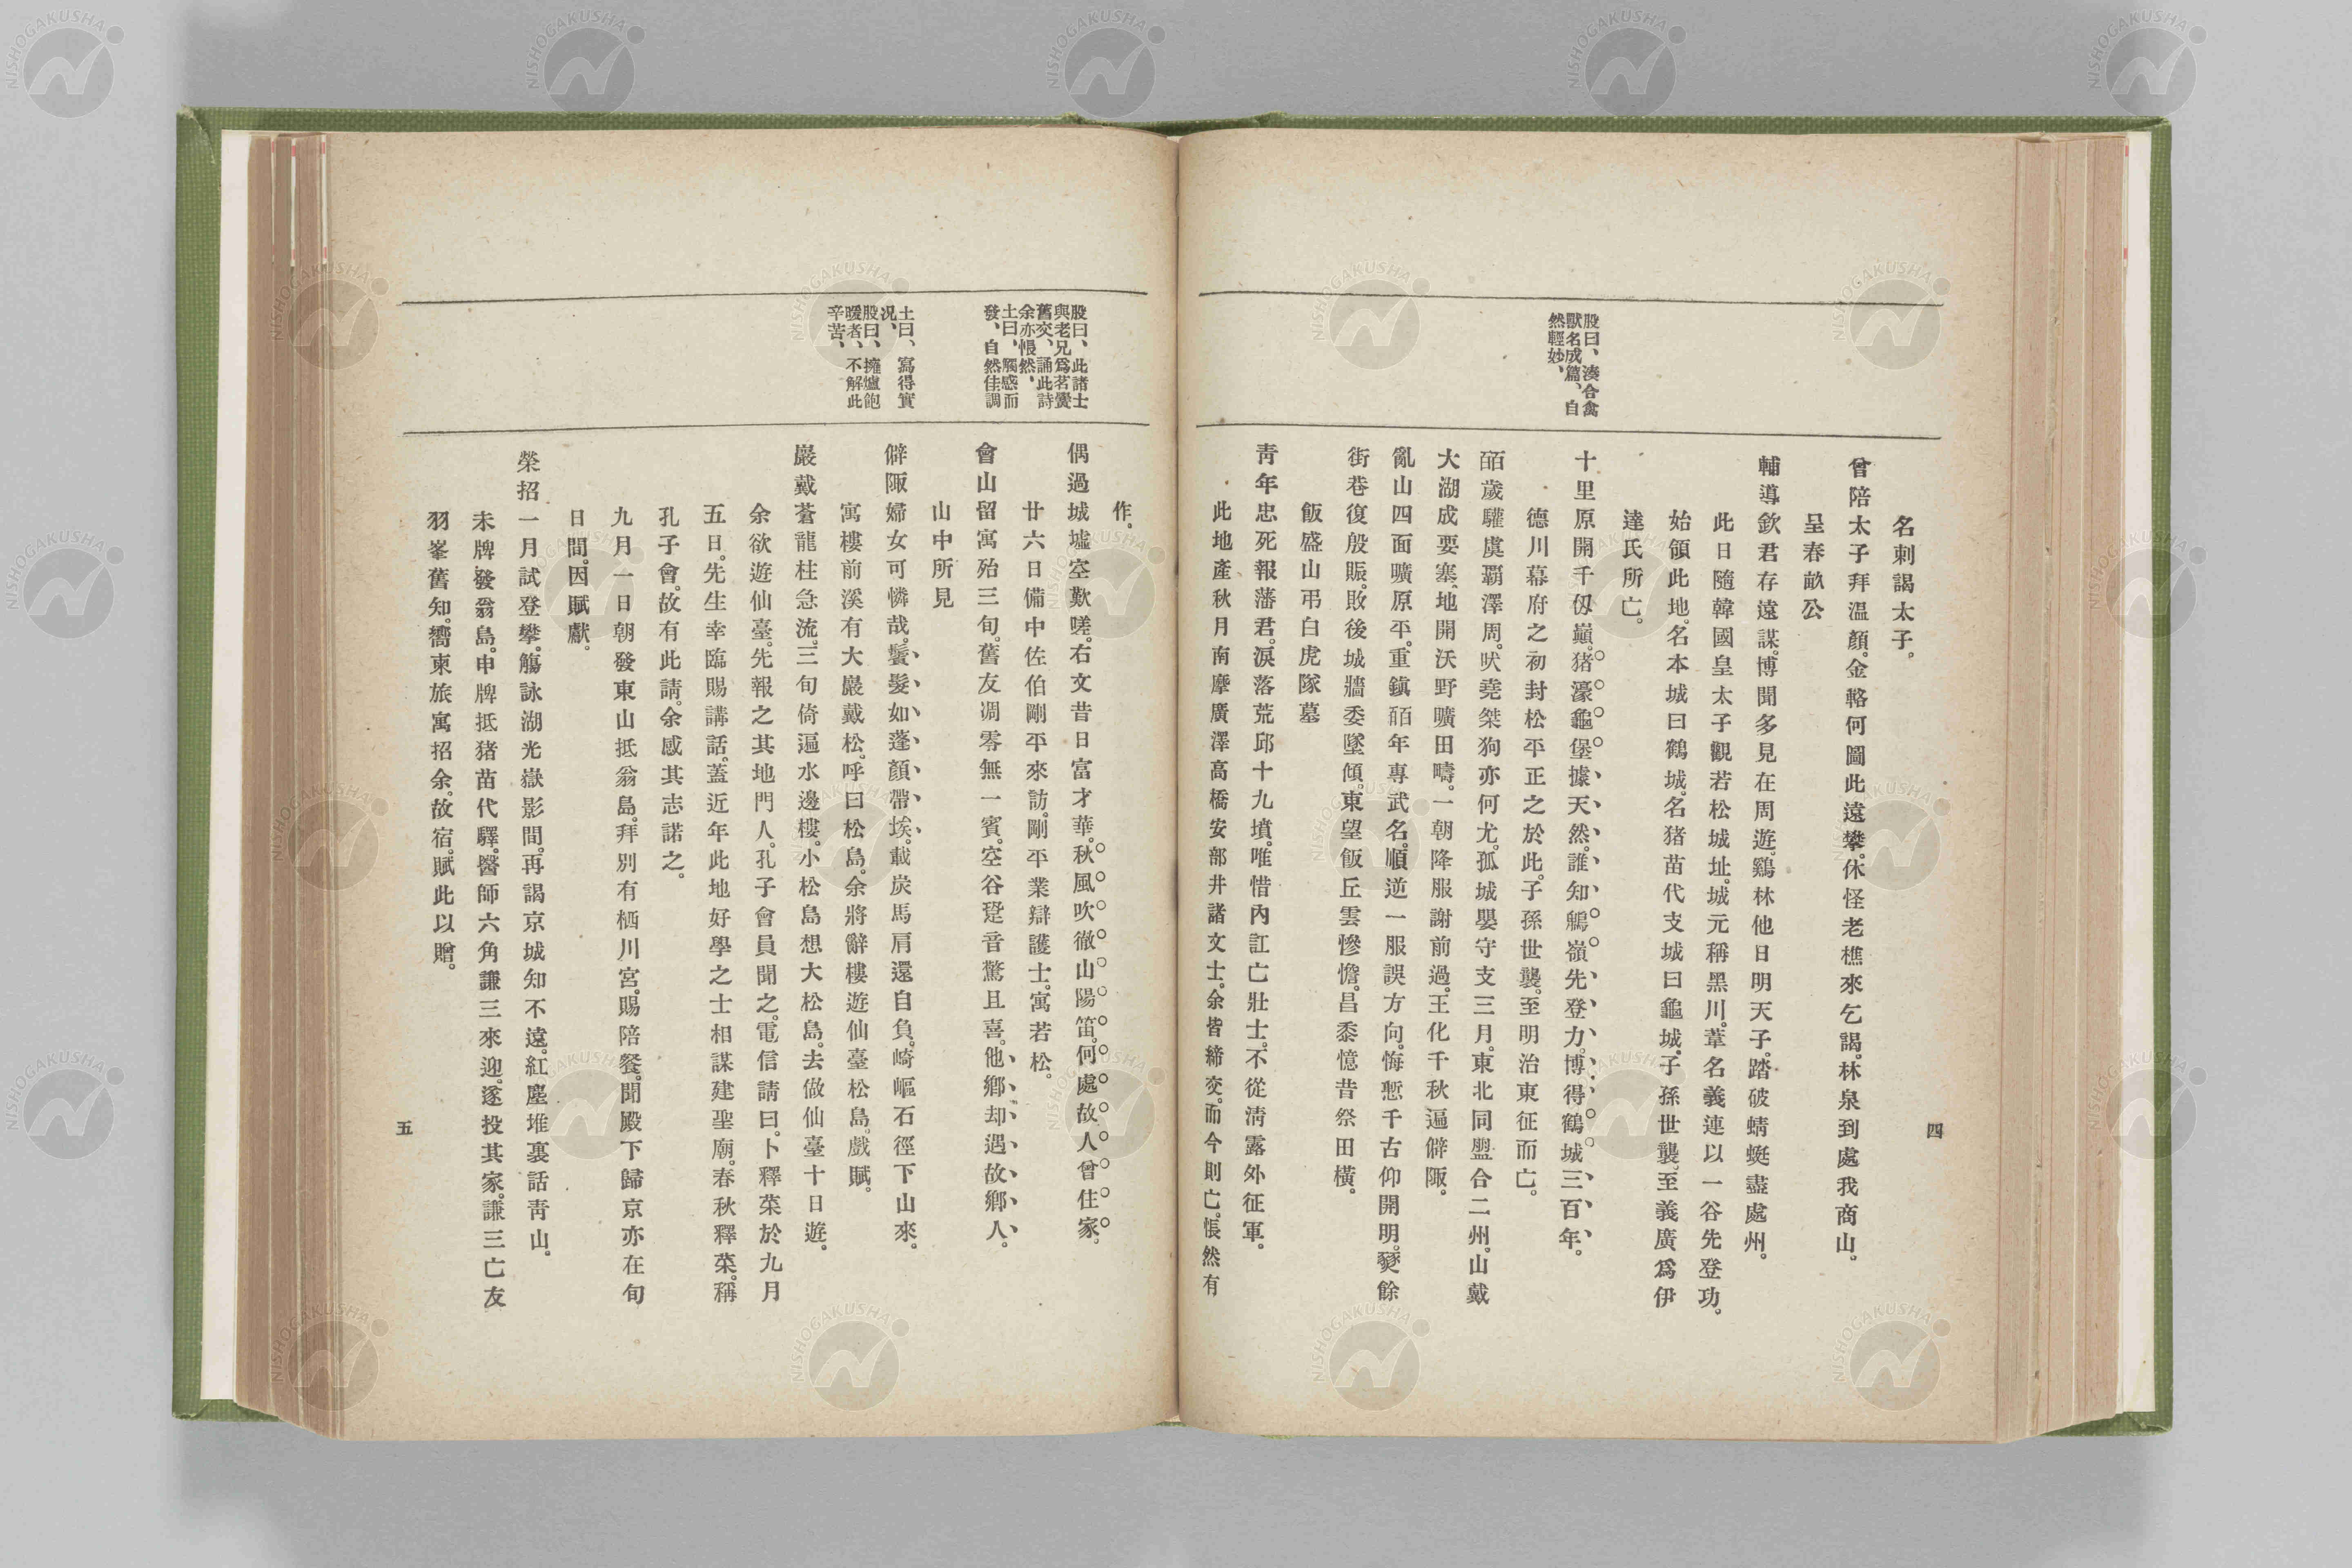 四
股曰、湊合禽
獸名成篇、自
然輕妙、
名刺謁太子。
曾陪太子拜溫顏。金輅何圖此遠攀。休怪老樵來乞謁。林泉到處我商山。
呈春畝公
輔導欽君存遠謀。博聞多見在周遊。鷄林他日明天子。踏破蜻蜓盡處州。
此日隨韓國皇太子觀若松城址。城元稱黑川。葦名義連以一谷先登功。
始領此地。名本城曰鶴城。名猪苗代支城曰龜城。子孫世襲。至義廣爲伊
達氏所亡。
十里原開千仭巓。猪濠龜堡據天然。誰知鵯嶺先登力。博得鶴城三百年。
德川幕府之初封松平正之於此。子孫世襲。至明治東征而亡。
皕歲驩虞覇澤周。吠堯桀狗亦何尤。孤城嬰守支三月。東北同盟合二州。山戴
大湖成要塞。地開沃野曠田疇。一朝降服謝前過。王化千秋遍僻陬。
亂山四面曠原平。重鎭皕年專武名。順逆一服誤方向。悔慙千古仰開明。燹餘
街巷復殷賑。敗後城牆委墜傾。東望飯丘雲慘憺。昌黍憶昔祭田橫。
飯盛山弔白虎隊墓
靑年忠死報藩君。淚落荒邱十九墳。唯惜內訌亡壯士。不從淸露外征軍。
此地產秋月南摩廣澤高橋安部井諸文士。余皆締交。而今則亡。悵然有
股曰、此諸士
與老兄爲茗黌
舊交、誦此詩
余亦悵然、
土曰、觸感而
發、自然佳調
土曰、寫得實
況、
股曰、擁爐飽
暖者、不解此
辛苦、
作。
偶過城墟空歎嗟。右文昔日富才華。秋風吹徹山陽笛。何處故人曾住家。
廿六日備中佐伯剛平來訪。剛平業辯護士。寓若松。
會山留寓殆三旬。舊友凋零無一賓。空谷跫音驚且喜。他鄕却遇故鄕人。
山中所見
僻陬婦女可憐哉。鬢髮如蓬顏帶埃。載炭馬肩還自負。崎嶇石徑下山來。
寓樓前溪有大巖戴松。呼曰松島。余將辭樓遊仙臺松島。戲賦。
巖戴蒼龍柱急流。三旬倚遍水邊樓。小松島想大松島。去做仙臺十日遊。
余欲遊仙臺。先報之其地門人。孔子會員聞之。電信請曰。卜釋菜於九月
五日。先生幸臨賜講話。蓋近年此地好學之士相謀建聖廟。春秋釋菜。稱
孔子會。故有此請。余感其志諾之。
九月一日朝發東山抵翁島。拜別有栖川宮。賜陪餐。聞殿下歸京亦在旬
日間。因賦獻。
榮招一月試登攀。觴詠湖光嶽影間。再謁京城知不遠。紅塵堆裏話靑山。
未牌發翁島。申牌抵猪苗代驛。醫師六角謙三來迎。遂投其家。謙三亡友
羽峯舊知。嚮東旅寓招余。故宿。賦此以贈。
五